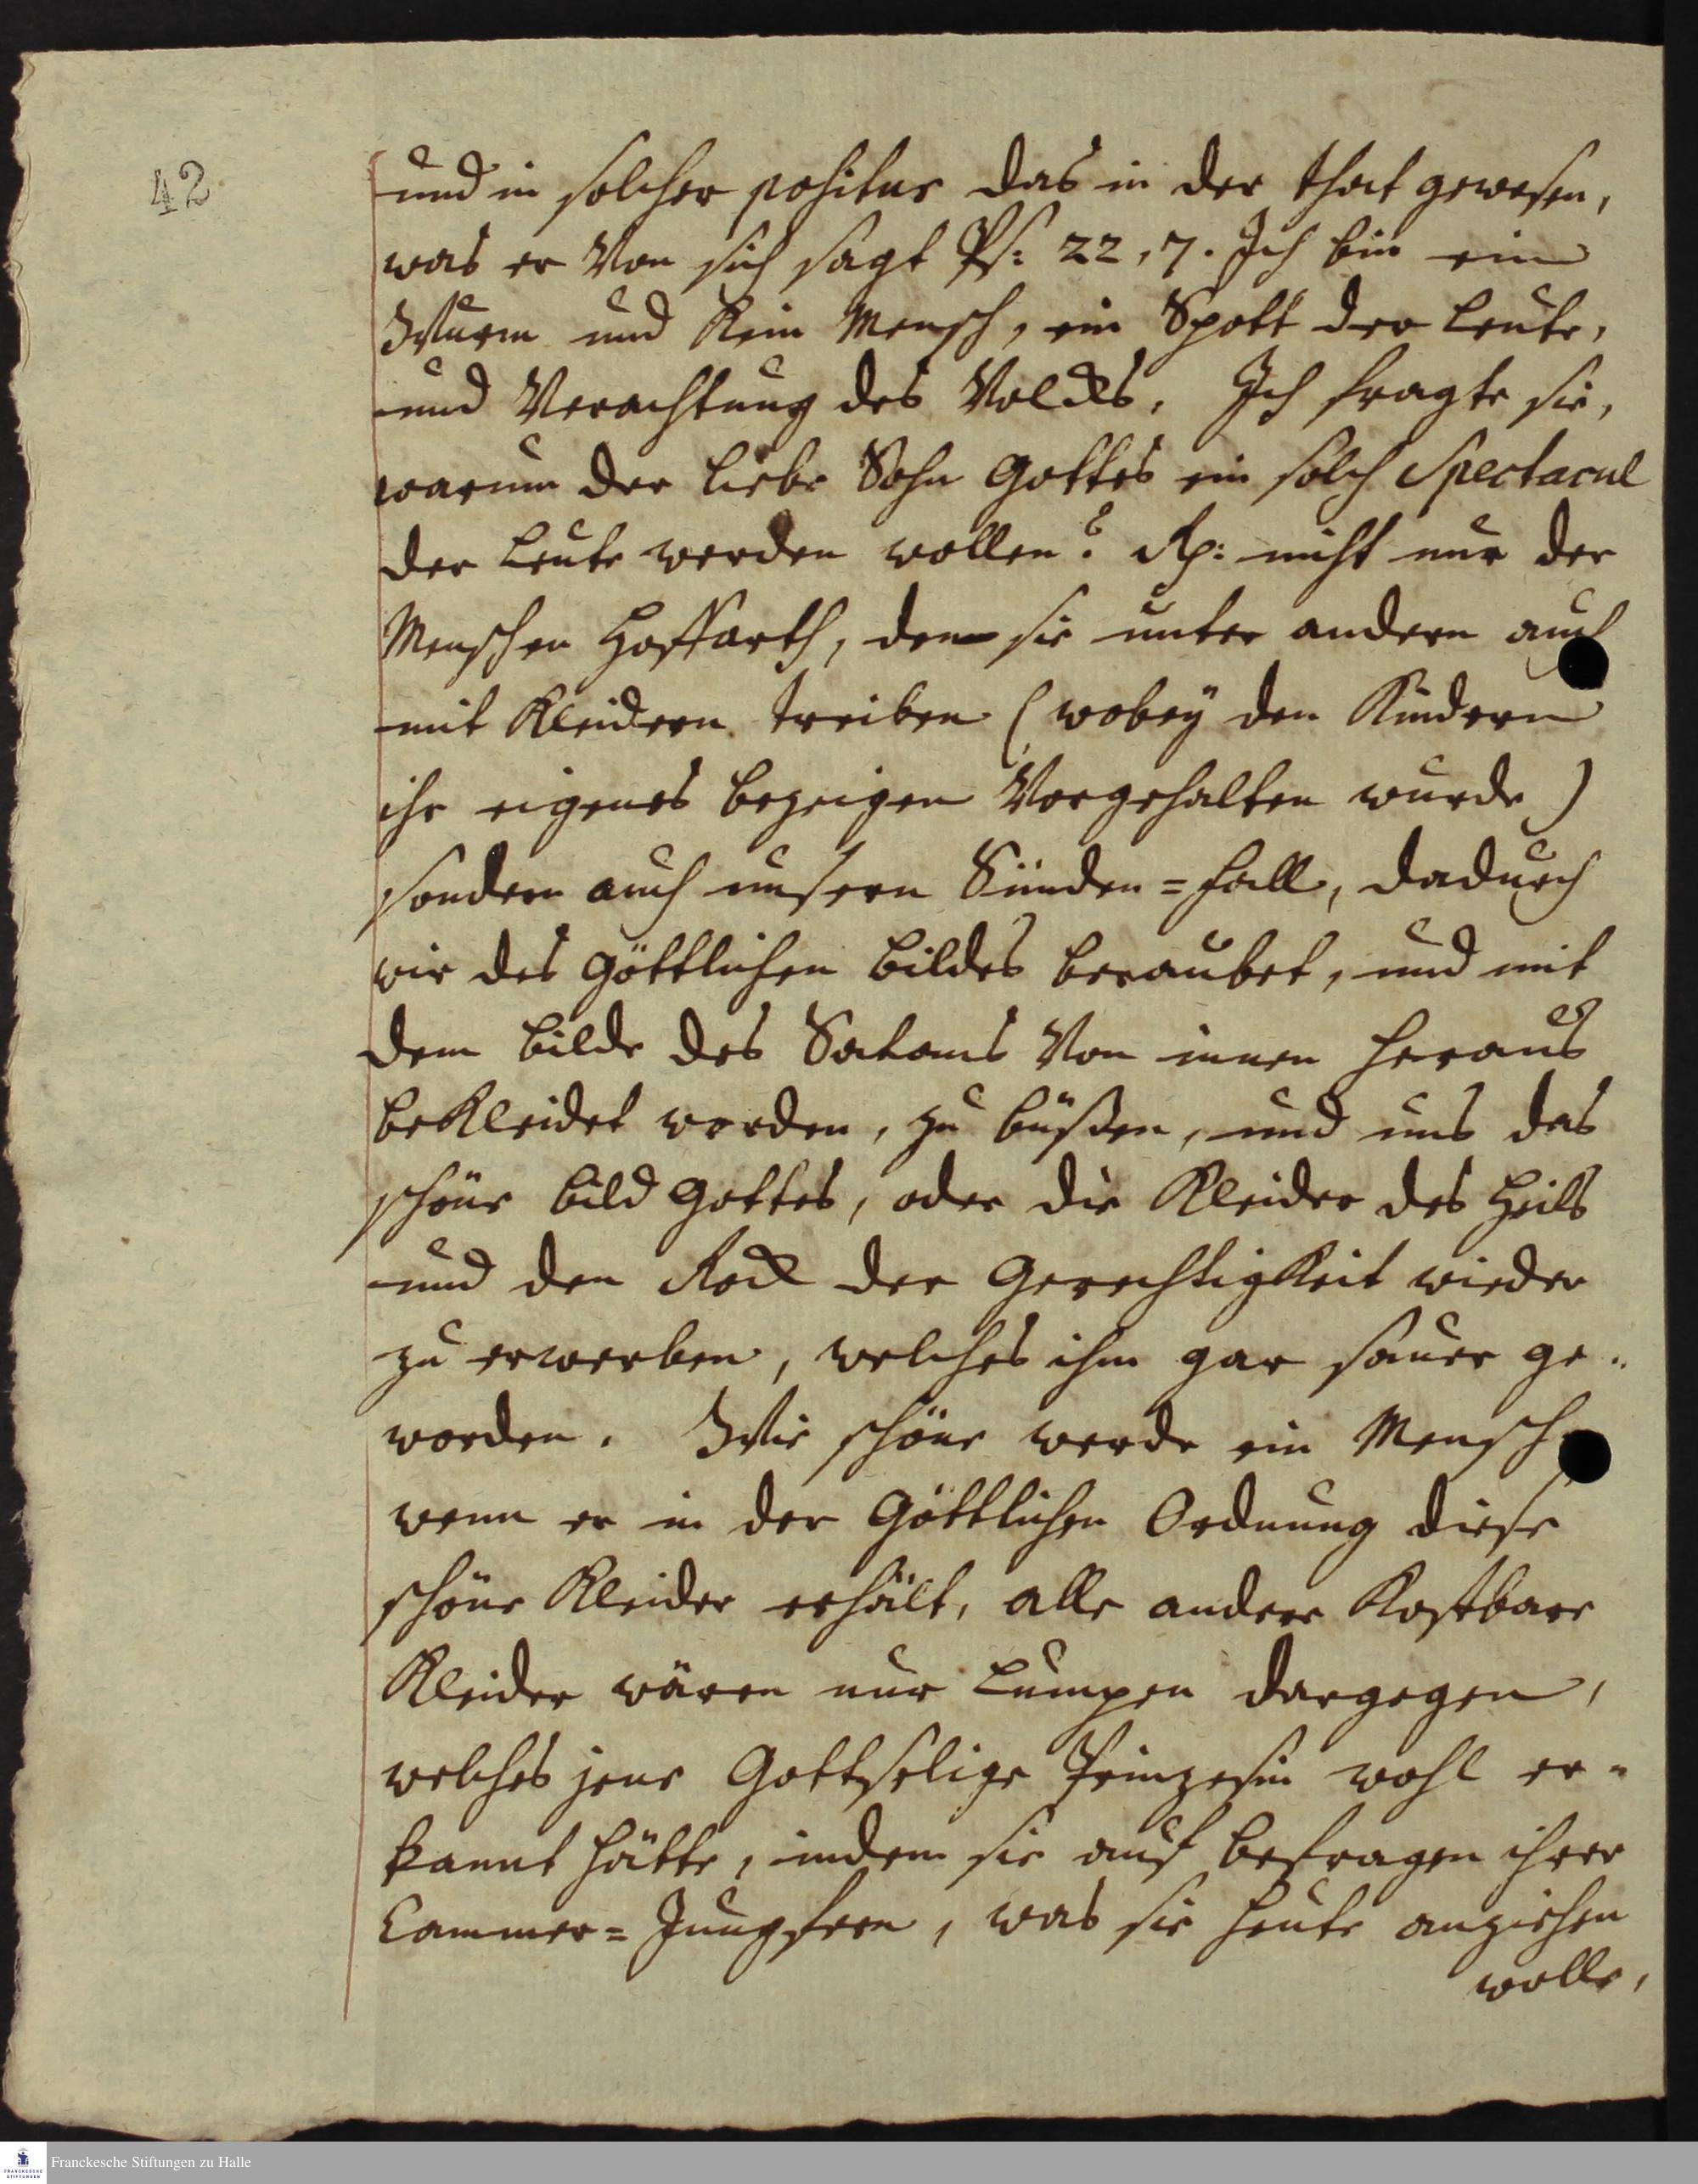 42
und in solcher positur das in der that gewesen,
was er Von sich sagt Ps: 22, 7. Ich bin ein
Wurm und Kein Mensch, ein Spott der Leute,
und Verachtung des Volcks. Ich fragte sie,
warum der liebe Sohn Gottes ein solch Spectacul
der Leute werden wollen? Rp: nicht nur der
Menschen Hoffarth, den sie unter andern auch
mit Kleidern treiben (wobey den Kindern
ihr eigenes bezeigen Vorgehalten wurde)
sondern auch unsern Sünden=fall, dadurch
wir des Göttlichen Bildes beraubet, und mit
dem Bilde des Satans Von innen heraus
beKleidet worden, zu büßen, und uns das
schöne Bild Gottes, oder die Kleider des Heils
und den Rock der GerechtigKeit wieder
zu erwerben, welches ihm gar sauer ge=
worden. Wie schöne werde ein Mensch
wenn er in der Göttlichen Ordnung diese
schöne Kleider erhält, alle andere Kostbare
Kleider wären nur Lumpen dargegen,
welches jene Gottselige Prinzesin wohl er=
kannt hätte, indem sie auf Befragen ihrer
Cammer=Jungfern, was sie heute anziehen
wolle,
Franckesche Stiftungen zu Halle
FRANCKESCHE STIFTUNGEN